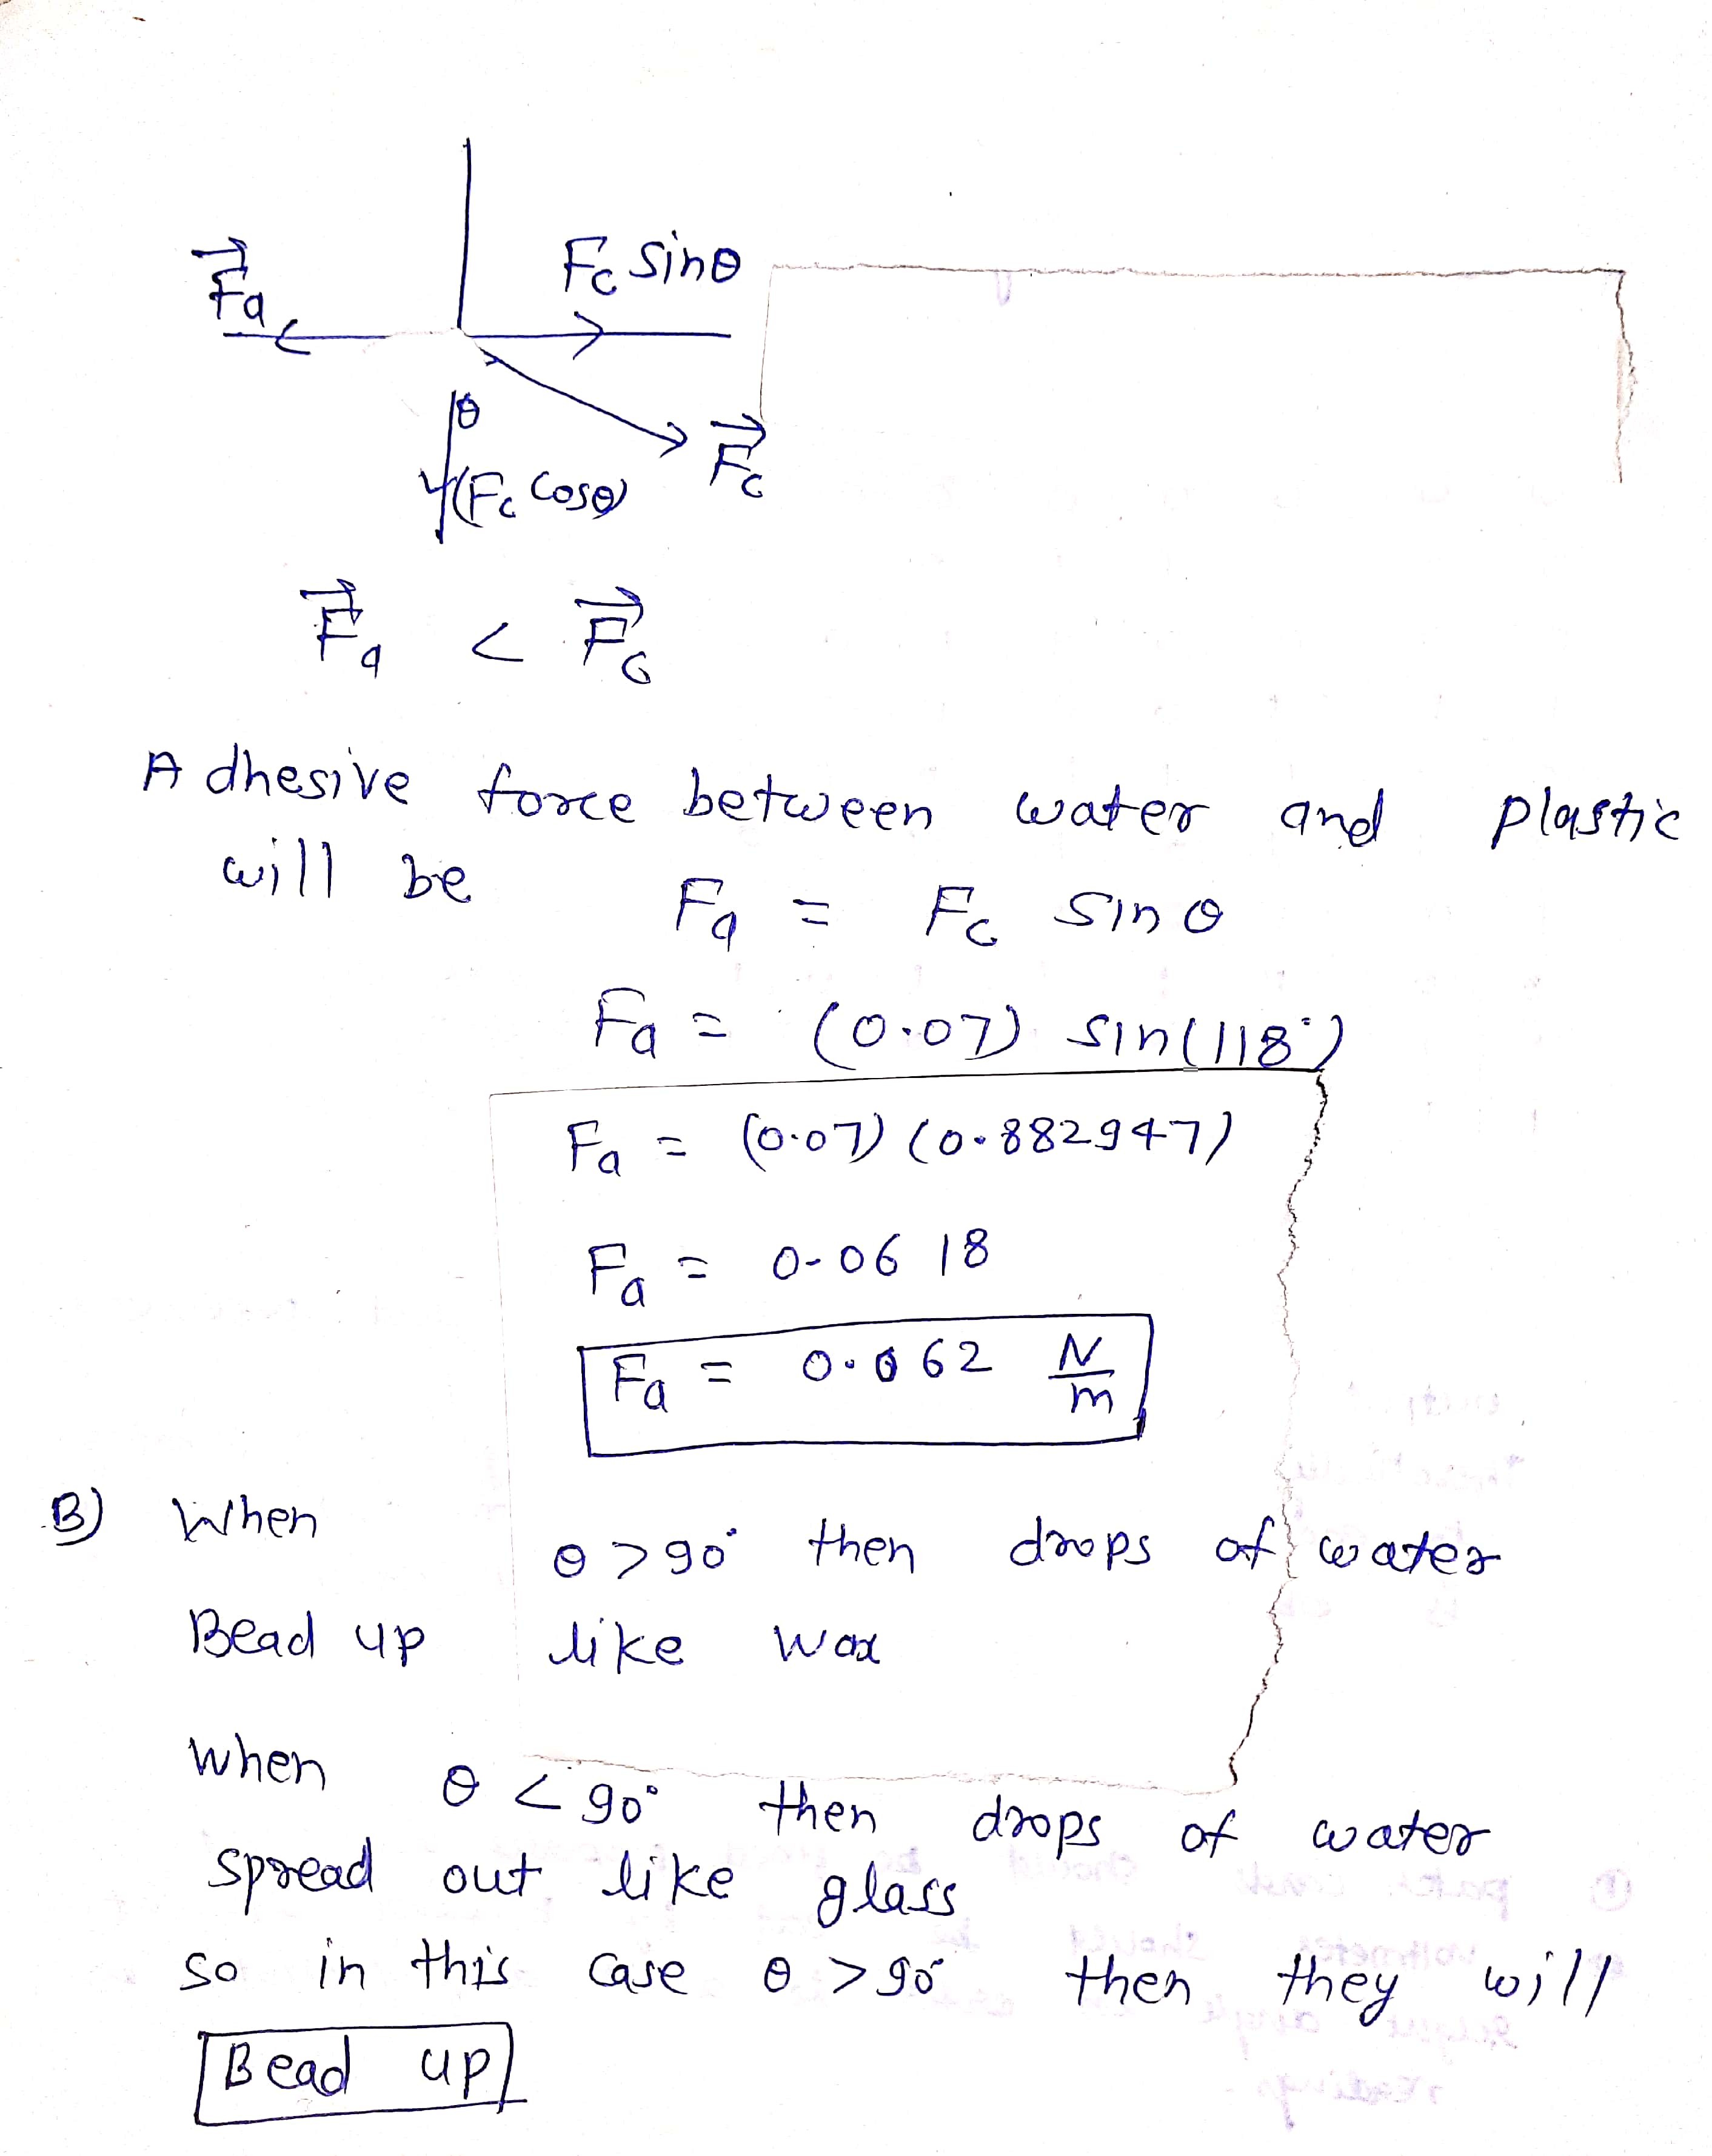 F⃗a
Fc Sinθ
θ
(Fc Cosθ)
F⃗c
F⃗a < F⃗c
Adhesive force between water and plastic
will be Fa = Fc Sinθ
Fa = (0.07) Sin(118°)
Fa = (0.07) (0.882947)
Fa = 0.0618
Fa = 0.062 N/m
B) When θ > 90° then drops of water
Bead up like wax
When θ < 90° then drops of water
spread out like glass
so in this case θ > 90° then they will
Bead up